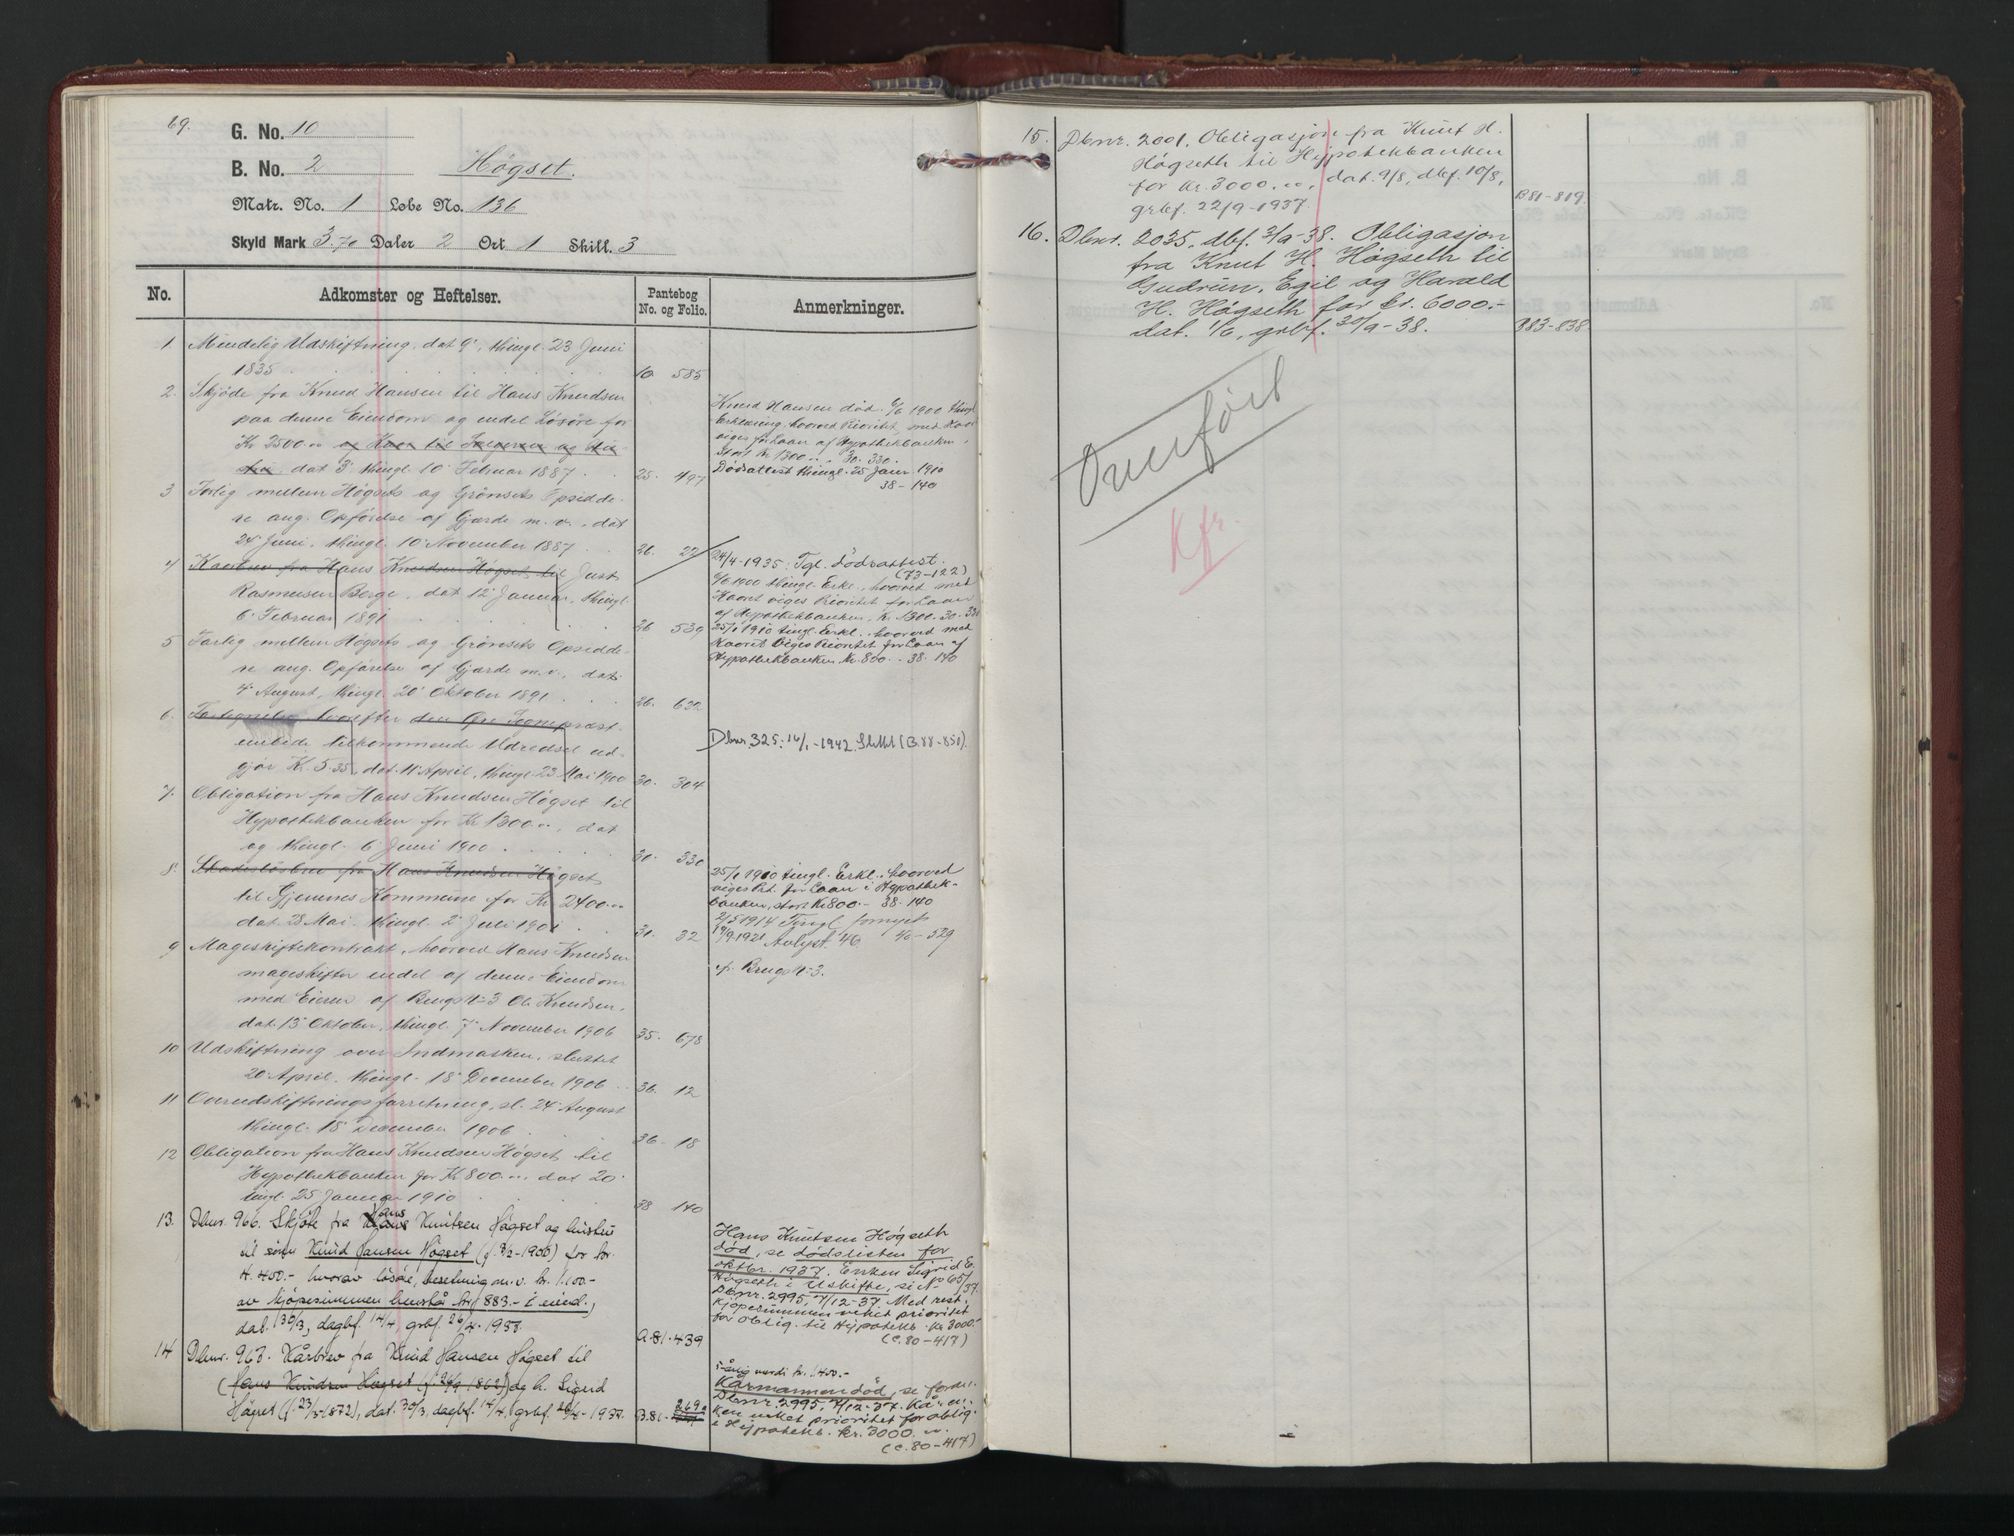 69.
G. No. 10
B. No. 2 Högset.
Matr. No. 1 Løbe No. 136
Skyld Mark 3.70 Daler 2 Ort 1 Skill. 3
No. Adkomster og Heftelser. Pantebog No. og Folio. Anmerkninger.
1 Mindelig Udskiftning, dat 9', thingl. 23 Juni
1835 10. 585
2. Skjöde fra Knud Hansen til Hans Knudsen
paa denne Eiendom og endel Løsøre for
Kr 2500.00 og Kaar til Sælgeren og
dat 3' thingl. 10' Februar 1887 25. 497
Knud Hansen död. 6/6 1900 thingl
Erklæring, hvorved Prioritet med Kaar
viges for Laan af Hypothekbanken,
stort Kr 1300.00, 30. 330.
Dødsattest thingl. 25 Janr. 1910
38 - 140
3 Forlig mellem Högsets og Grönsets Opsidde-
re ang. Opförelse af Gjærde m. v., dat
24' Juni, thingl. 10' November 1887 26. 22
4 Kaarbrev fra Hans Knudsen Högset til Just
Rasmusen Berge, dat 12' Januar, thingl.
6' Februar 1891 26 539
24/4-1935: Tgl. dödsattest.
(73-122)
6/6 1900 thingl. Erkl., hvorved med
Kaaret viges Prioritet for Laan
af Hypothekbanken, Kr 1300. 30. 330
25/1 1910 tingl. Erkl., hvorved med
Kaaret viges Prioritet for Laan af
Hypothekbanken Kr. 800.. 38. 140
5 Forlig mellem Högsets og Grönsets Opsidde-
re ang. Opförelse af Gjærde m. v., dat
4' August, thingl. 20' Oktober 1891 26. 622
6. hvorefter den Øre Sogneprest-
embede tilkommende Udredsel ud-
gjør Kr. 5.35, dat. 11 April, thingl. 23 Mai 1900 30. 304
Dbnr. 325: 16/1-1942. Slettet (B.88-850).
7. Obligation fra Hans Knudsen Högset til
Hypothekbanken for Kr 1300.00, dat
og thingl. 6 Juni 1900 30. 330
8. Skadesløsbrev fra Hans Knudsen Högset
til Gjemnes Kommune for Kr 2400.00
dat. 28 Mai, thingl. 2' Juli 1901 31. 32
25/1 1910 tingl. Erkl., hvorved
viges Prt. for Laan i Hypothek-
banken, stort Kr 800.- 38. 140
2/5 1914 Tingl fornyet
40-529
19/9-1921 Avlyst 46
9 Mageskiftekontrakt, hvorved Hans Knudsen
mageskifter endel af denne Eiendom
med Eieren af Brugs N° 3 Ole Knudsen,
dat. 13' Oktober, thingl. 7' November 1906 35. 678
cfr. Brugs N° 3.
10 Udskiftning over Indmarken, sluttet
20' April, thingl. 18' December 1906 36. 12
11 Overudskiftningsforretning, sl. 24' August
thingl. 18' December 1906 36. 18
12 Obligation fra Hans Knudsen Högset til
Hypothekbanken for Kr 800.00, dat 20'
tingl. 25 Januar 1910 38 140
13. Dbnr. 966. Skjöte fra Hans Knutsen Högset og hustru
til sönn Knud Hansen Högset (f. 3/2-1906) for kr.
4.400.- hvorav lösöre, besetning m.v. kr. 1.100-
av kjöpesummen henstår kr. 883.- i eiend.,
dat. 30/3, dagbf. 14/4, grbf. 26/4-1937. A.81.439
Hans Knutsen Högseth
död, se dödslisten for
oktbr. 1937. Enken Sigrid E.
Högseth i uskifte, se N° 65/37.
Dbnr. 2995, 7/12-37. Med rest.
kjöpesummen veket prioritet
for oblig. til Hypotekb. kr. 3000.-
(C.80-417)
14 Dbnr. 967. Kårbrev fra Knud Hansen Högset til
(Hans Knudsen Högset (f. 26/9 1862) og h. Sigrid
Högset (f. 23/5-1872), dat. 30/3, dagbf. 14/4, grbf. 26/4-1937. B.81. 269a
5-årig verdi kr. 1.400.-
Kårmannen död, se foran.
Dbnr. 2995, 7/12-37.
veket prioritet for oblig.
i Hypotekb. kr. 3000.00.
(C.80-417)
15. Dbnr. 2001. Obligasjon fra Knut H.
Högseth til Hypotekbanken
for kr. 3000.00, dat. 9/8, dbf. 10/8,
grbf. 22/9-1937. B81-819.
16. Dbnr. 2035, dbf. 2/9-38. Obligasjon
fra Knut H. Högseth til
Gudrun, Egil og Harald
H. Högseth for kr. 6000.-
dat. 1/6, grbf. 30/9-38. B83-838
Overført
Kfr.